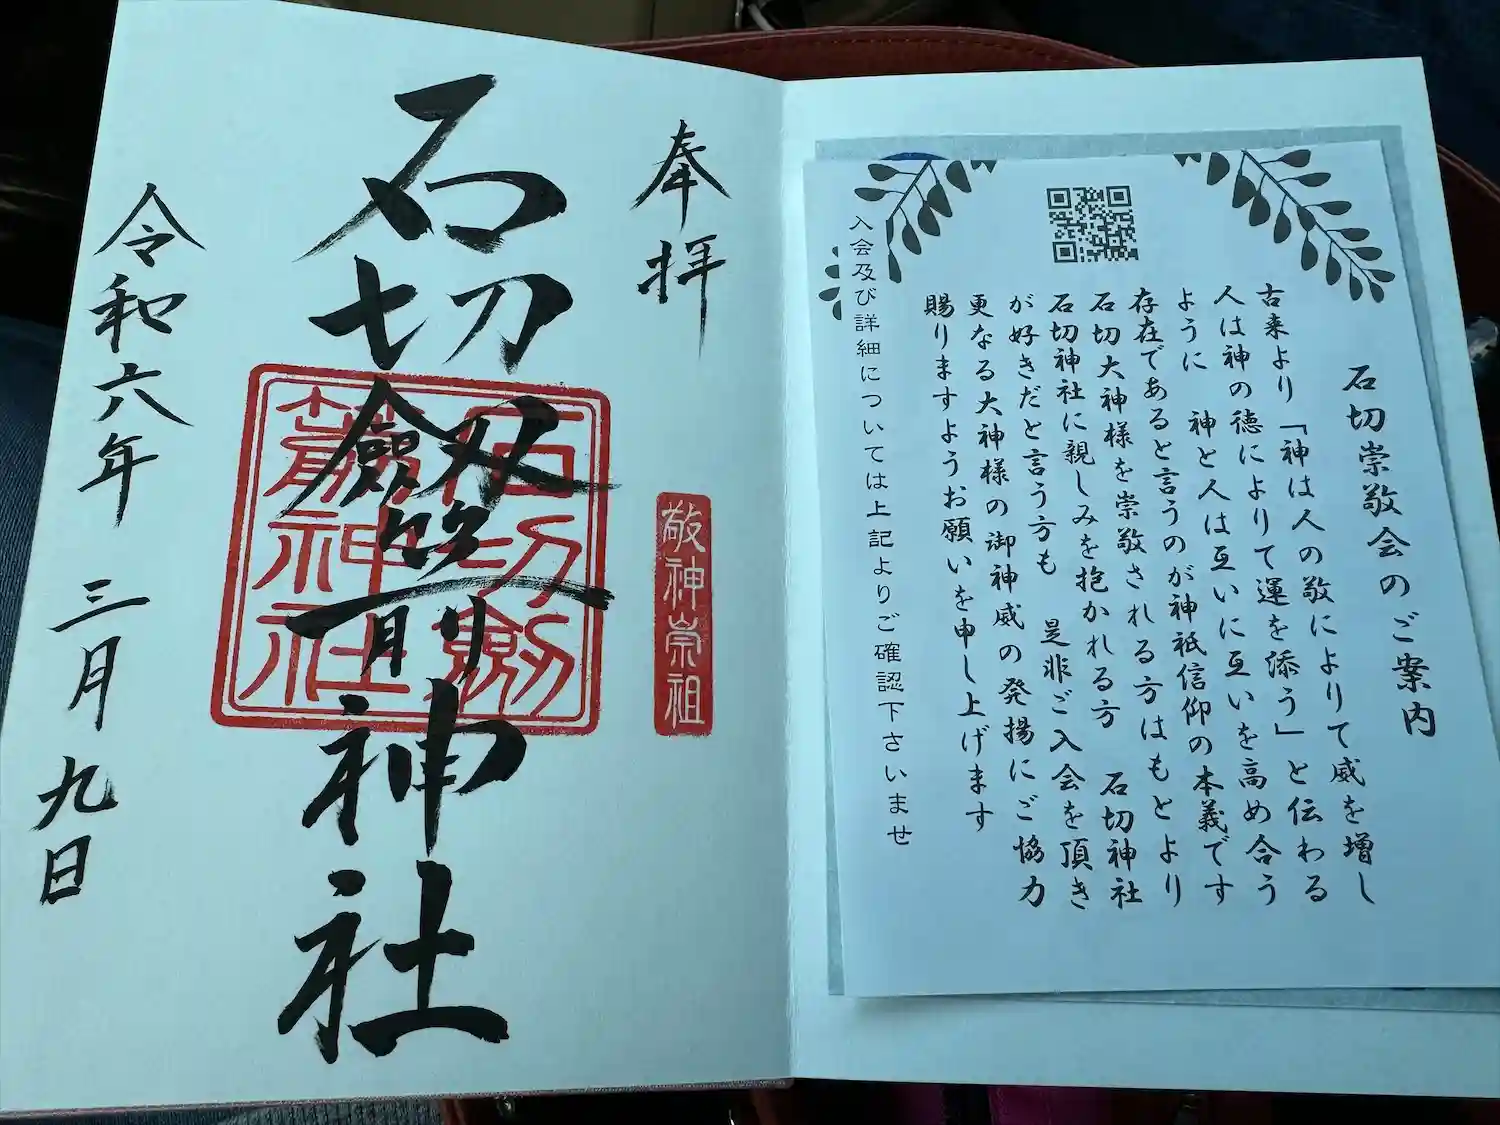 石切崇敬会のご案内
古来より「神は人の敬によりて威を増し
人は神の徳によりて運を添う」と伝わる
ように　神と人は互いに互いを高め合う
存在であると言うのが神祇信仰の本義です
石切大神様を崇敬される方はもとより
石切神社に親しみを抱かれる方　石切神社
が好きだと言う方も　是非ご入会を頂き
更なる大神様の御神威の発揚にご協力
賜りますようお願いを申し上げます
入会及び詳細については上記よりご確認下さいませ
奉拝
敬神崇祖
石切劔箭神社
石切劔
箭神社
令和六年三月九日